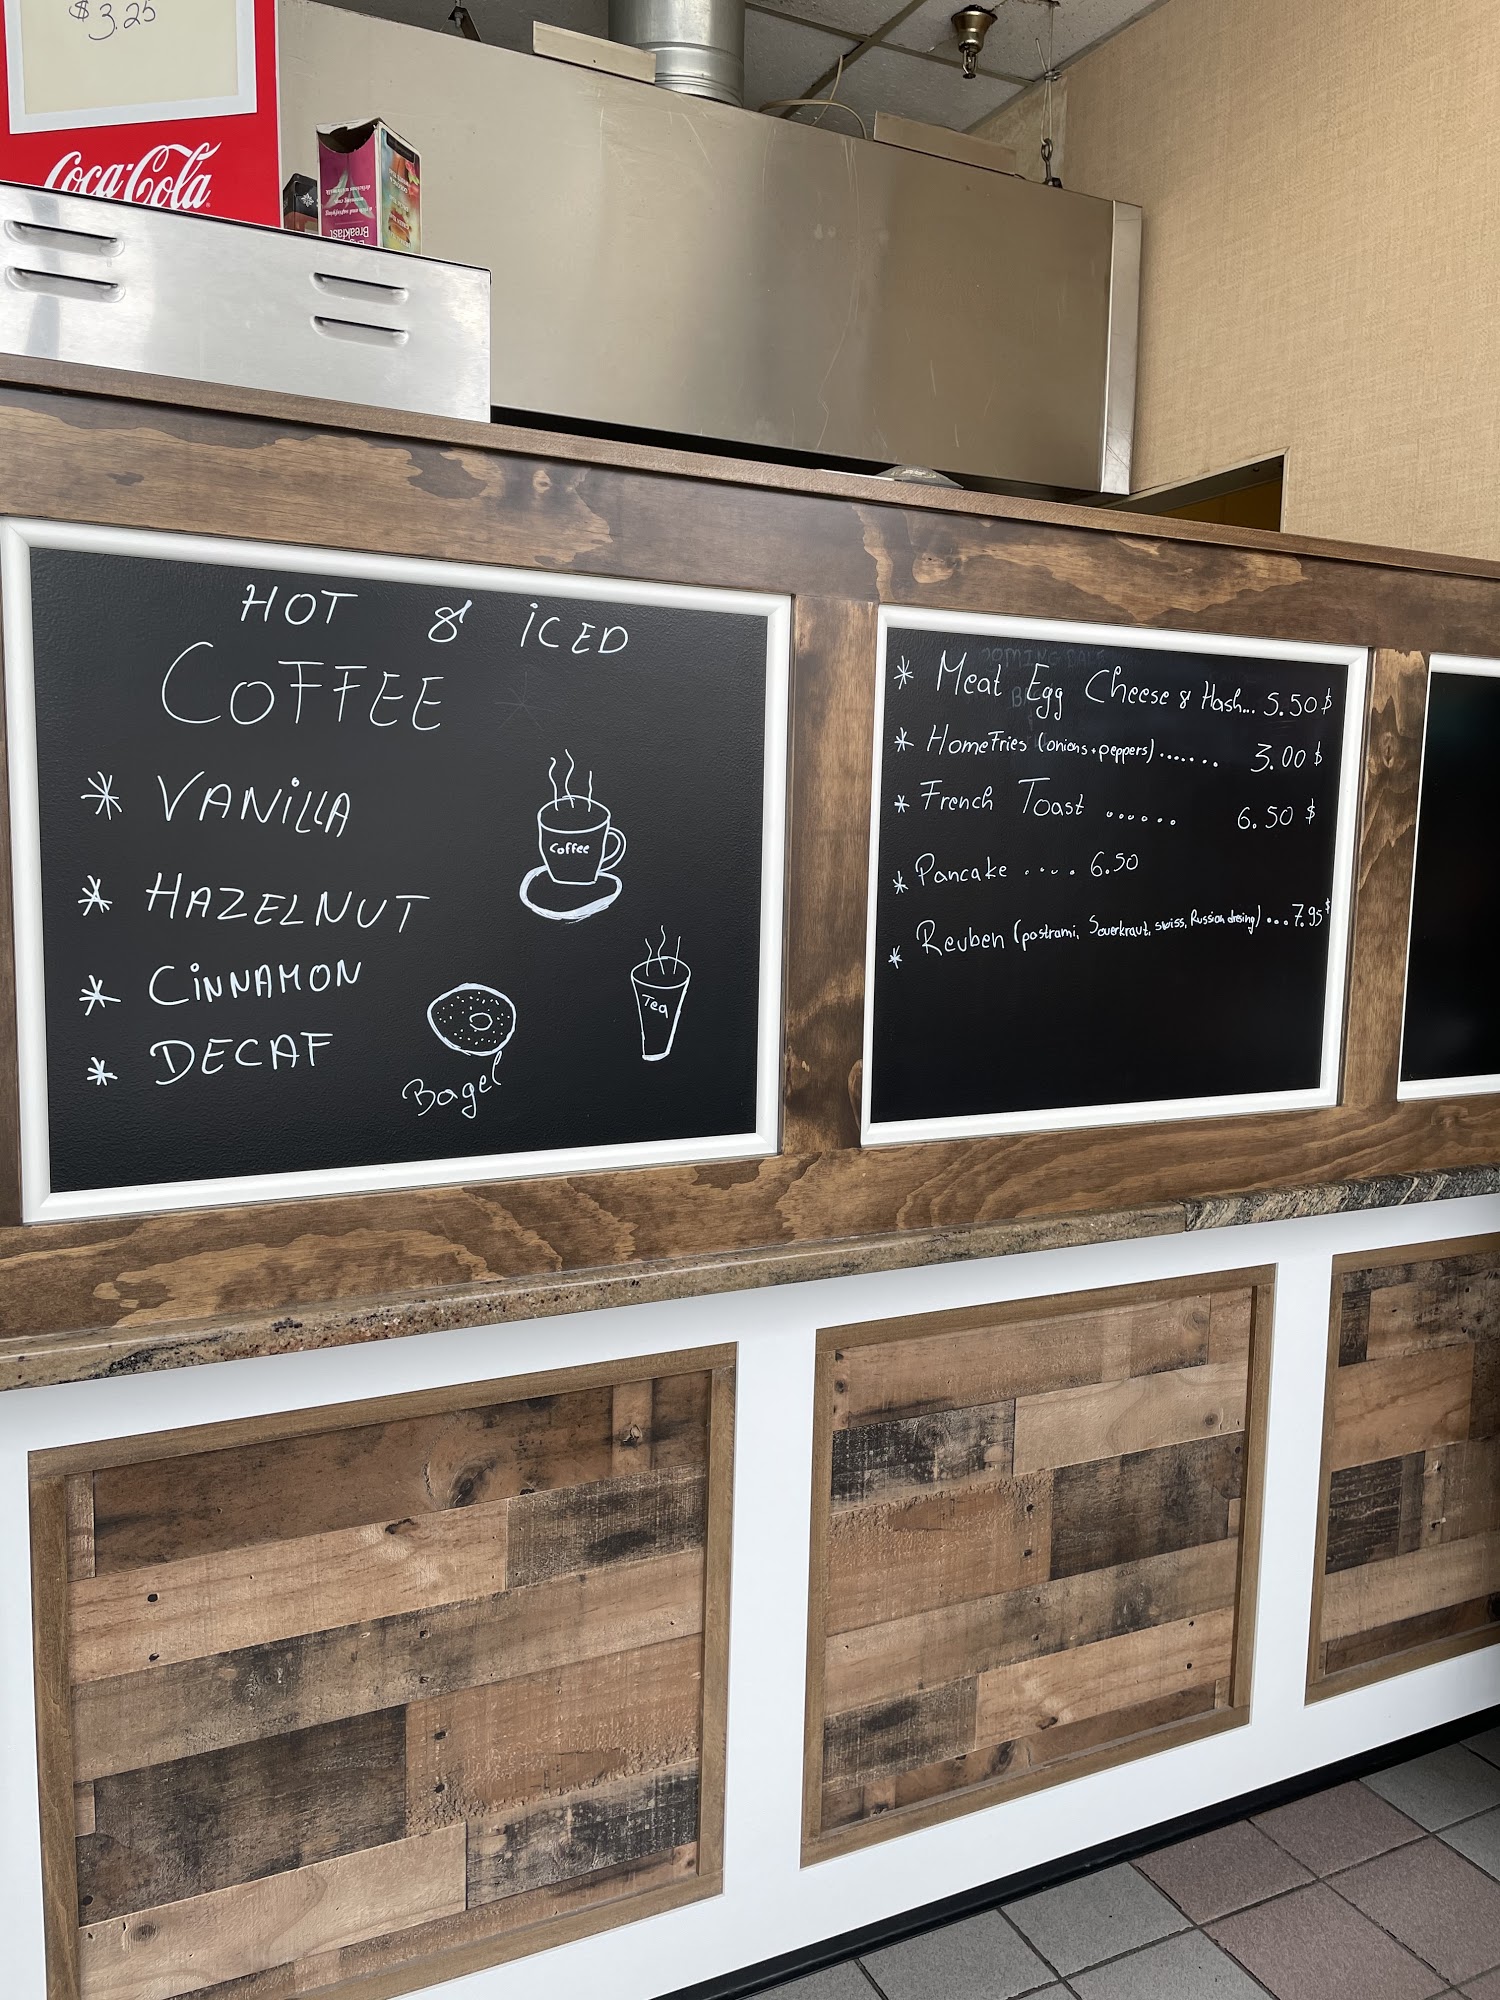 $3.25
Coca-Cola
Breakfast
HOT & iCED
COFFEE
* VANiLLA
* HAZELNUT
* CiNNAMON
* DECAF
Coffee
Tea
Bagel
* Meat Egg Cheese & Hash... 5.50 $
* HomeFries (onions + peppers)....... 3.00 $
* French Toast ...... 6.50 $
* Pancake .... 6.50
* Reuben (pastrami, Souerkraut, swiss, Russian dresing)...7.95 $